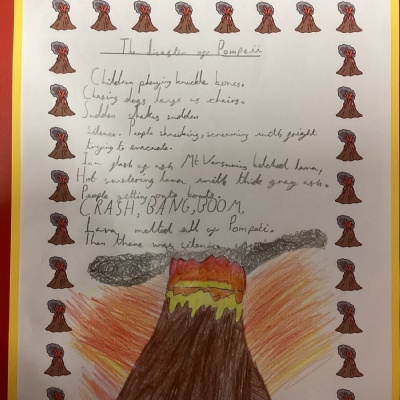 The disaster of Pompeii
Children playing knuckle bones.
Chasing dogs large as chairs.
Sudden shakes sudden
Silence. People shrieking, screaming with fright
trying to evacuate.
flash of ash Mt Vesuvius belched lava,
Hot sweltering lava with thick gray ash.
People getting onto boats.
CRASH, BANG, BOOM.
Lava melted all of Pompeii.
Then there was silence